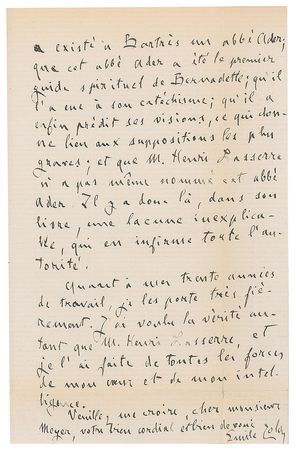 a existé à Bartrès un abbé Ader;
que cet abbé Ader a été le premier
guide spirituel de Bernadette; qu'il
l'a eue à son catéchisme; qu'il a
enfin prédit ses visions, ce qui don-
ne lieu aux suppositions les plus
graves; et que M. Henri Lasserre
n'a pas même nommé cet abbé
Ader. Il y a donc là, dans son
livre, une lacune inexplica-
ble, qui en infirme toute l'au-
torité.
Quant à mes trente années
de travail, je les porte très fiè-
rement. J'ai voulu la vérité au-
tant que M. Henri Lasserre, et
je l'ai faite de toutes les forces
de mon cœur et de mon intel-
ligence.
Veuillez me croire, cher monsieur
Meyer, votre bien cordial et bien dévoué
Emile Zola